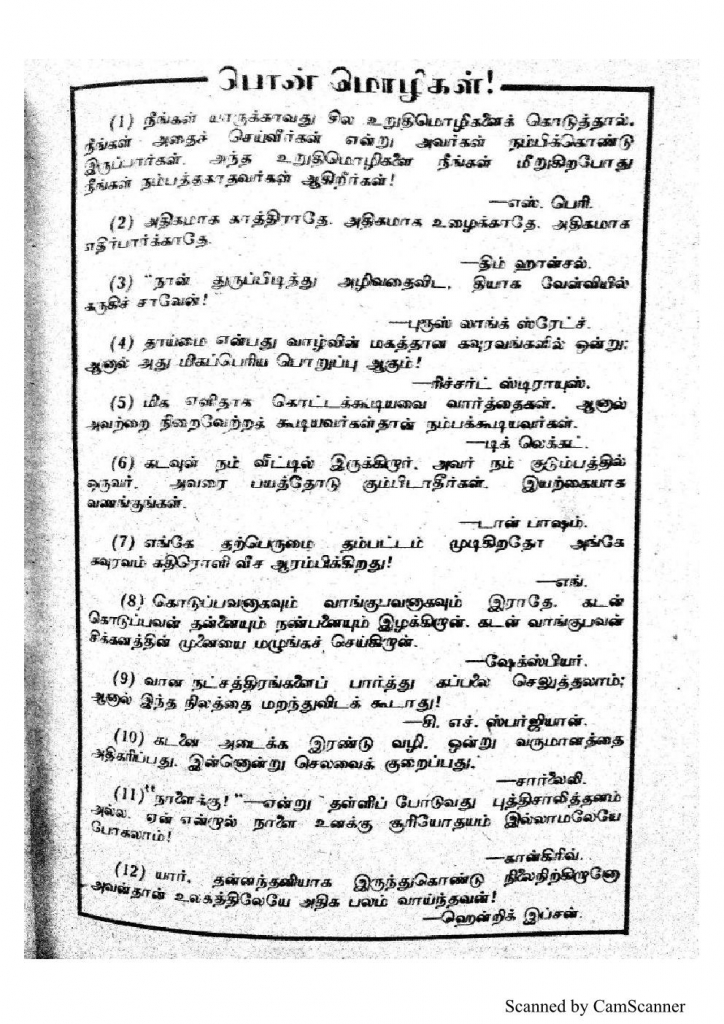 பொன் மொழிகள்!
(1) நீங்கள் யாருக்காவது சில உறுதிமொழிகளைக் கொடுத்தால்.
நீங்கள் அதைச் செய்வீர்கள் என்று அவர்கள் நம்பிக்கொண்டு
இருப்பார்கள். அந்த உறுதிமொழிகளை நீங்கள் மீறுகிறபோது
நீங்கள் நம்பத்தகாதவர்கள் ஆகிறீர்கள்!
—எஸ். பெரி.
(2) அதிகமாக காத்திராதே. அதிகமாக உழைக்காதே. அதிகமாக
எதிர்பார்க்காதே.
—திம் ஹான்சல்.
(3) "நான் துருப்பிடித்து அழிவதைவிட, தியாக வேள்வியில்
கருகிச் சாவேன்!"
—புரூஸ் லாங்க் ஸ்ரேட்ச்.
(4) தாய்மை என்பது வாழ்வின் மகத்தான கவுரவங்களில் ஒன்று;
ஆனால் அது மிகப்பெரிய பொறுப்பு ஆகும்!
—ரிச்சர்ட் ஸ்டிராயுஸ்.
(5) மிக எளிதாக கொட்டக்கூடியவை வார்த்தைகள். ஆனால்
அவற்றை நிறைவேற்றத் கூடியவர்கள்தான் நம்பக்கூடியவர்கள்.
—டிக் லெக்கட்.
(6) கடவுள் நம் வீட்டில் இருக்கிறார். அவர் நம் குடும்பத்தில்
ஒருவர். அவரை பயத்தோடு கும்பிடாதீர்கள். இயற்கையாக
வணங்குங்கள்.
—டான் பாஷம்.
(7) எங்கே தற்பெருமை தம்பட்டம் முடிகிறதோ அங்கே
கவுரவம் கதிரொளி வீச ஆரம்பிக்கிறது!
—எங்.
(8) கொடுப்பவனாகவும் வாங்குபவனாகவும் இராதே. கடன்
கொடுப்பவன் தன்னையும் நண்பனையும் இழக்கிறான். கடன் வாங்குபவன்
சிக்கனத்தின் முனையை மழுங்கச் செய்கிறான்.
—ஷேக்ஸ்பியர்.
(9) வான நட்சத்திரங்களைப் பார்த்து கப்பலை செலுத்தலாம்;
ஆனால் இந்த நிலத்தை மறந்துவிடக் கூடாது!
—சி. எச். ஸ்பர்ஜியான்.
(10) கடனை அடைக்க இரண்டு வழி. ஒன்று வருமானத்தை
அதிகரிப்பது. இன்னொன்று செலவைக் குறைப்பது.
—சார்லைலி.
(11) "நாளைக்கு!"—என்று தள்ளிப் போடுவது புத்திசாலித்தனம்
அல்ல. ஏன் என்றால் நாளை உனக்கு சூரியோதயம் இல்லாமலேயே
போகலாம்!
—கான்கிரிவ்.
(12) யார், தன்னந்தனியாக இருந்துகொண்டு நிலைநிற்கிறானோ
அவன்தான் உலகத்திலேயே அதிக பலம் வாய்ந்தவன்!
—ஹென்றிக் இப்சன்.
Scanned by CamScanner